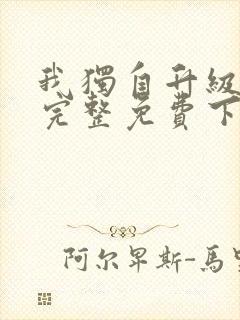 我獨自升級
完整免費下
阿尔卑斯-馬